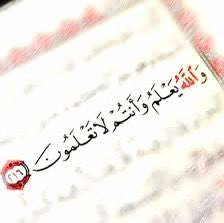 وَاللَّهُ يَعْلَمُ وَأَنْتُمْ لَا تَعْلَمُونَ ٢١٦